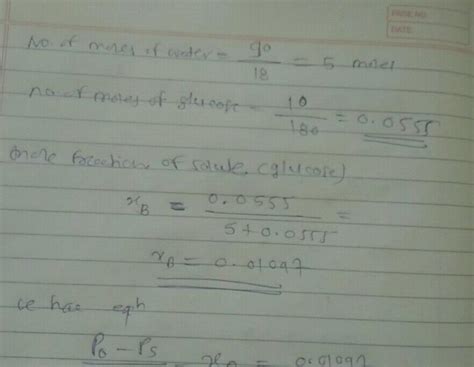 PAGE NO.
DATE:
No. of moles of water = 90/18 = 5 moles
no. of moles of glucose = 10/180 = 0.0555
mole fraction of solute (glucose)
xB = 0.0555 / 5+0.0555 =
xB = 0.01097
we has eqn
Po - Ps = 0.01097